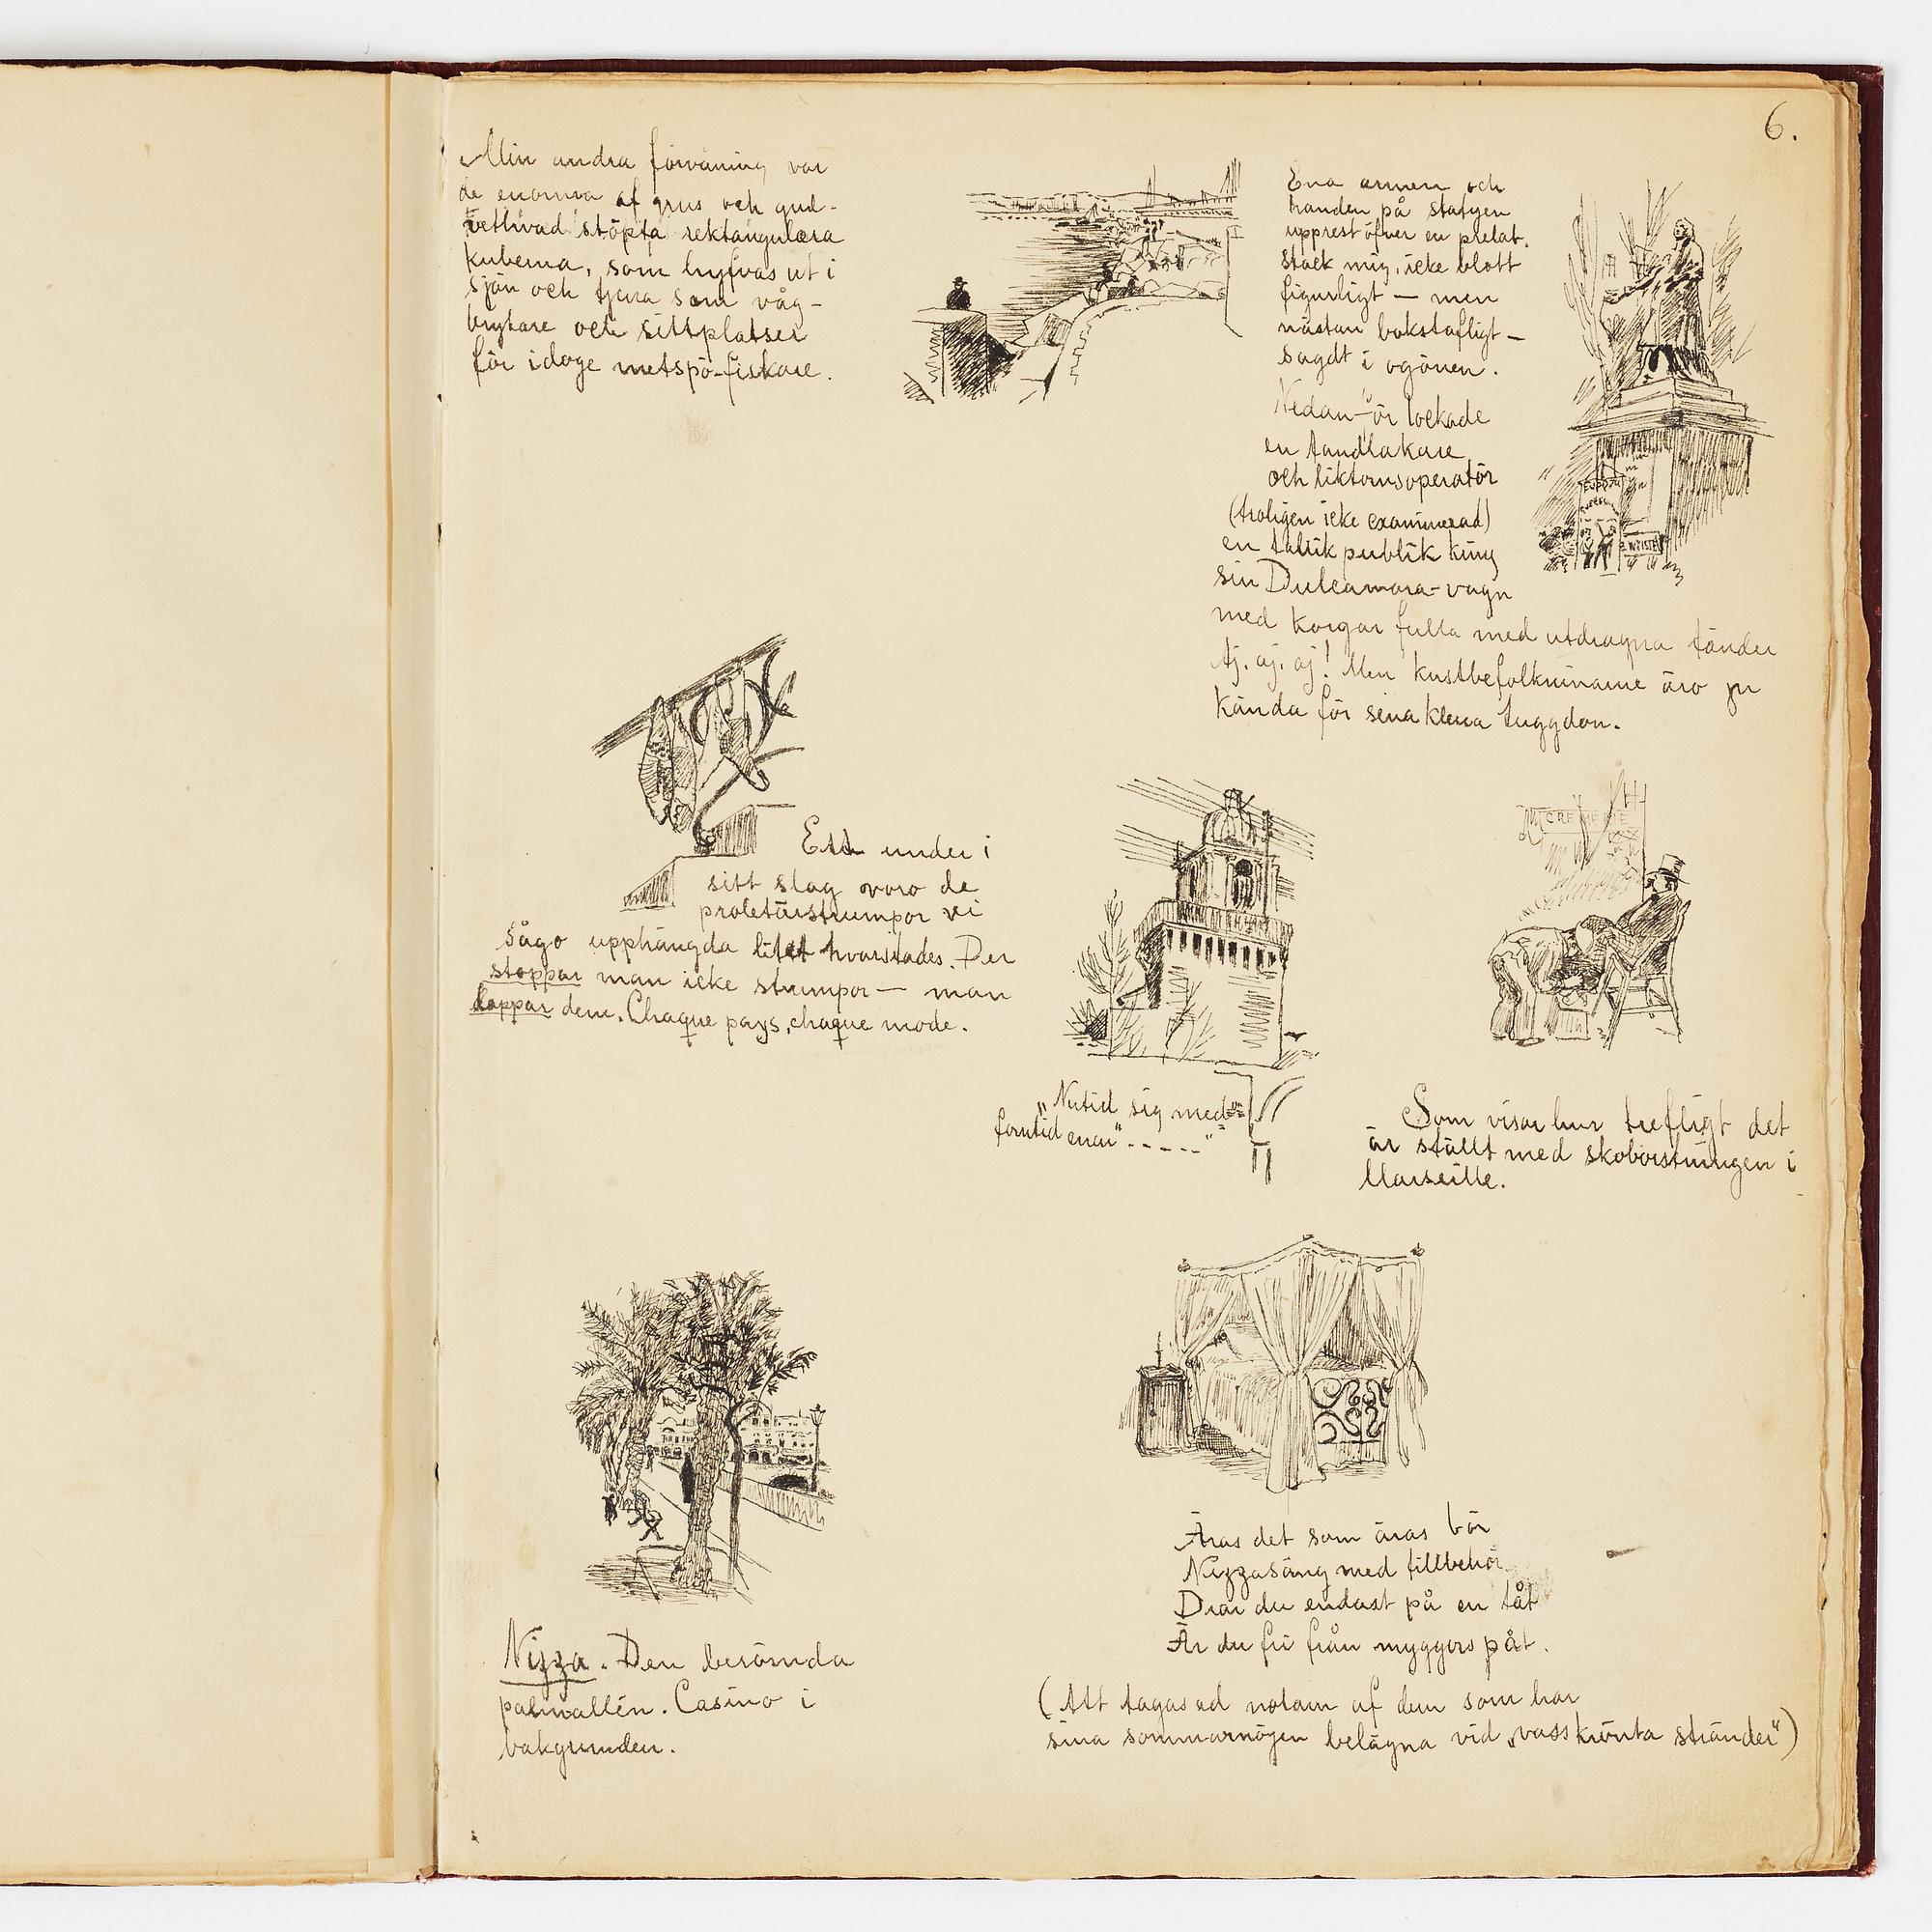 6.
Min andra förvåning var
de enorma af grus och gud-
vethvad stöpta rektangulära
kuberna, som hyfvas ut i
sjön och tjena som våg-
brytare och sittplatser
för idoge metspö-fiskare.
Ena armen och
handen på statyen
upprest öfver en prelat.
stack mig, icke blott
figurligt — men
nästan bokstafligt —
sagdt i ögonen.
Nedan-för lockade
en tandläkare
och liktornsoperatör
(troligen icke examinerad)
en talrik publik kring
sin Dulcamara-vagn
med korgar fulla med utdragna tänder
Aj. aj. aj! Men kustbefolkningarne äro ju
kända för sina klena tuggdon.
Ett under i
sitt slag voro de
proletärstrumpor vi
sågo upphängda litet hvarstädes. Der
stoppar man icke strumpor — man
loppar dem. Chaque pays, chaque mode.
CREMERIE
„Nutid sig med
forntid enar" - - - - - "
Som visar hur trefligt det
är ställt med skoborstningen i
Marseille.
Nizza. Den berömda
palmallén. Casino i
bakgrunden.
Äras det som äras bör
Nizzasäng med tillbehör
Drar du endast på en tåt
Är du fri från myggors påt.
(Att tagas ad notam af dem som har
sina sommarnöjen belägna vid „vasskrönta stränder")